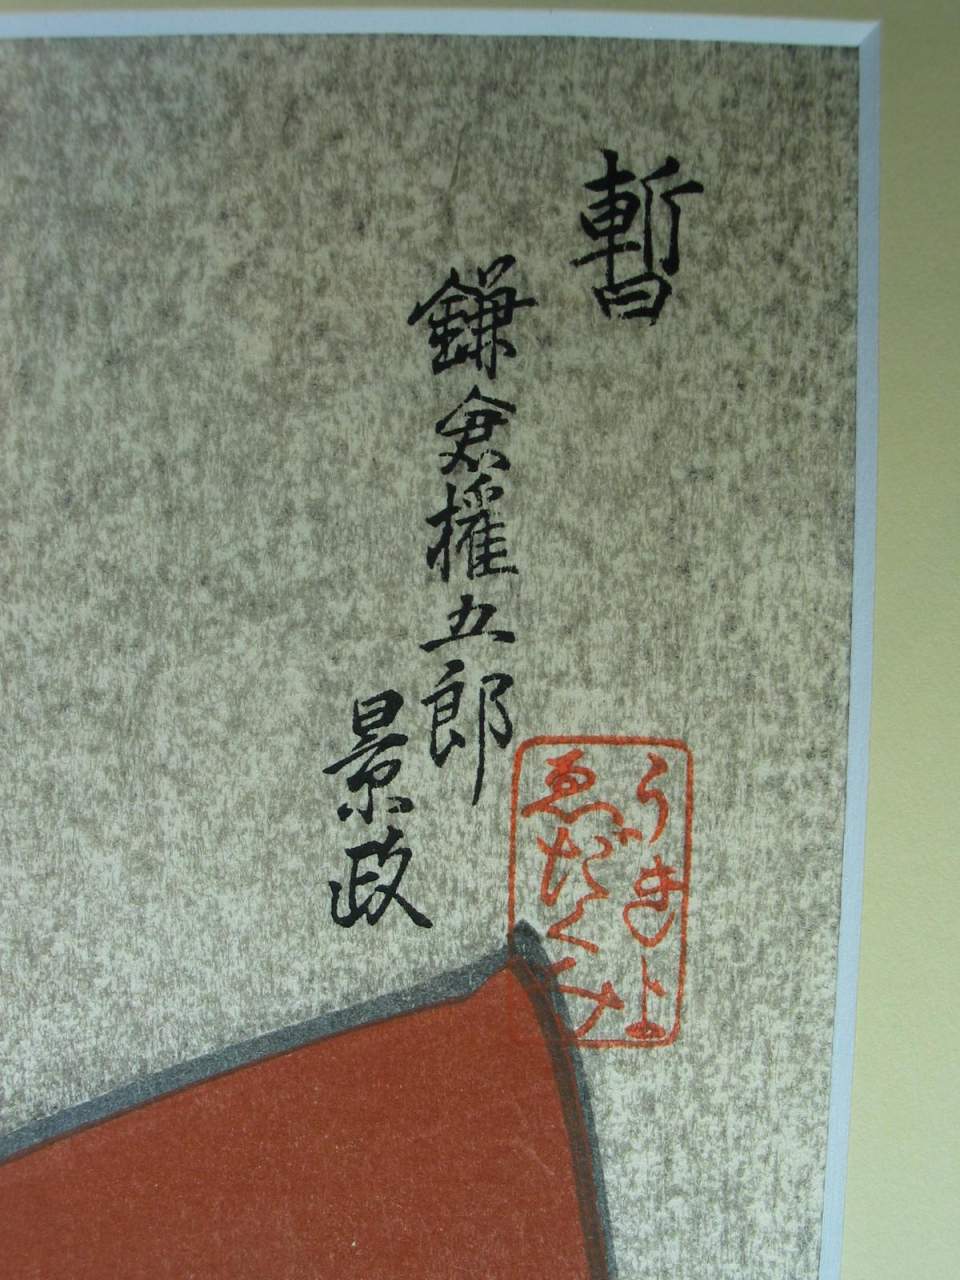 暫
鎌倉権五郎
景政
うきよ
ゑだくみ